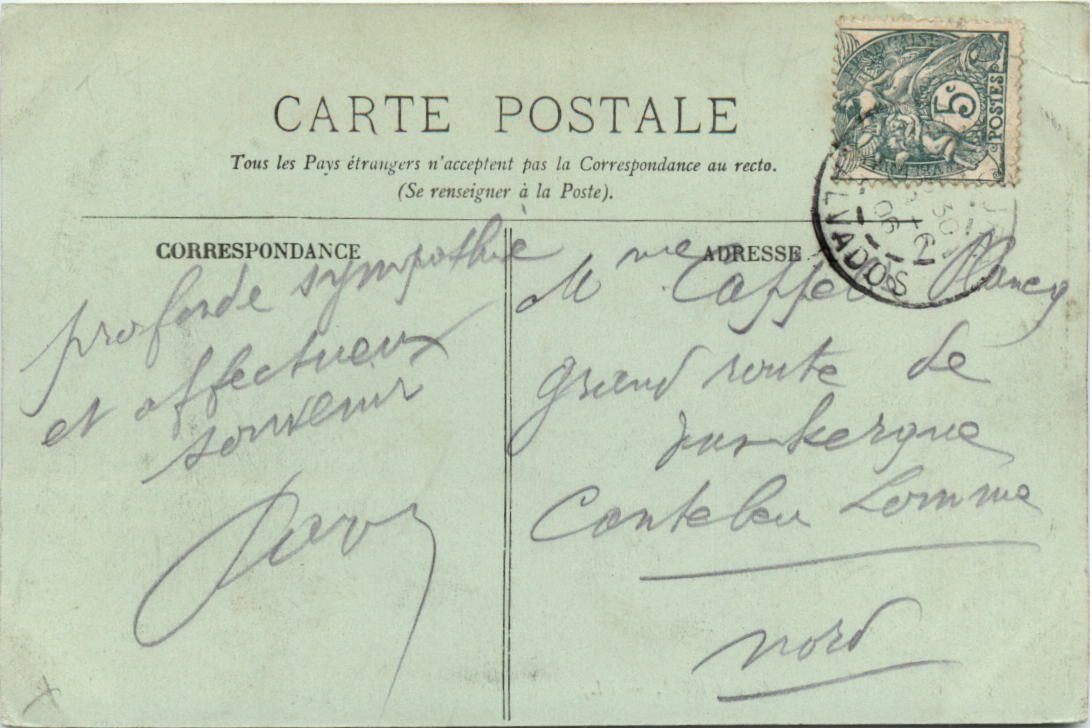 CARTE POSTALE
Tous les Pays étrangers n'acceptent pas la Correspondance au recto.
(Se renseigner à la Poste).
5c
POSTES
CALVADOS
CORRESPONDANCE
profonde sympathie
et affectueux
souvenir
ADRESSE
Mme Nancy
grand route de
Dunkerque
Canteleu Lomme
Nord